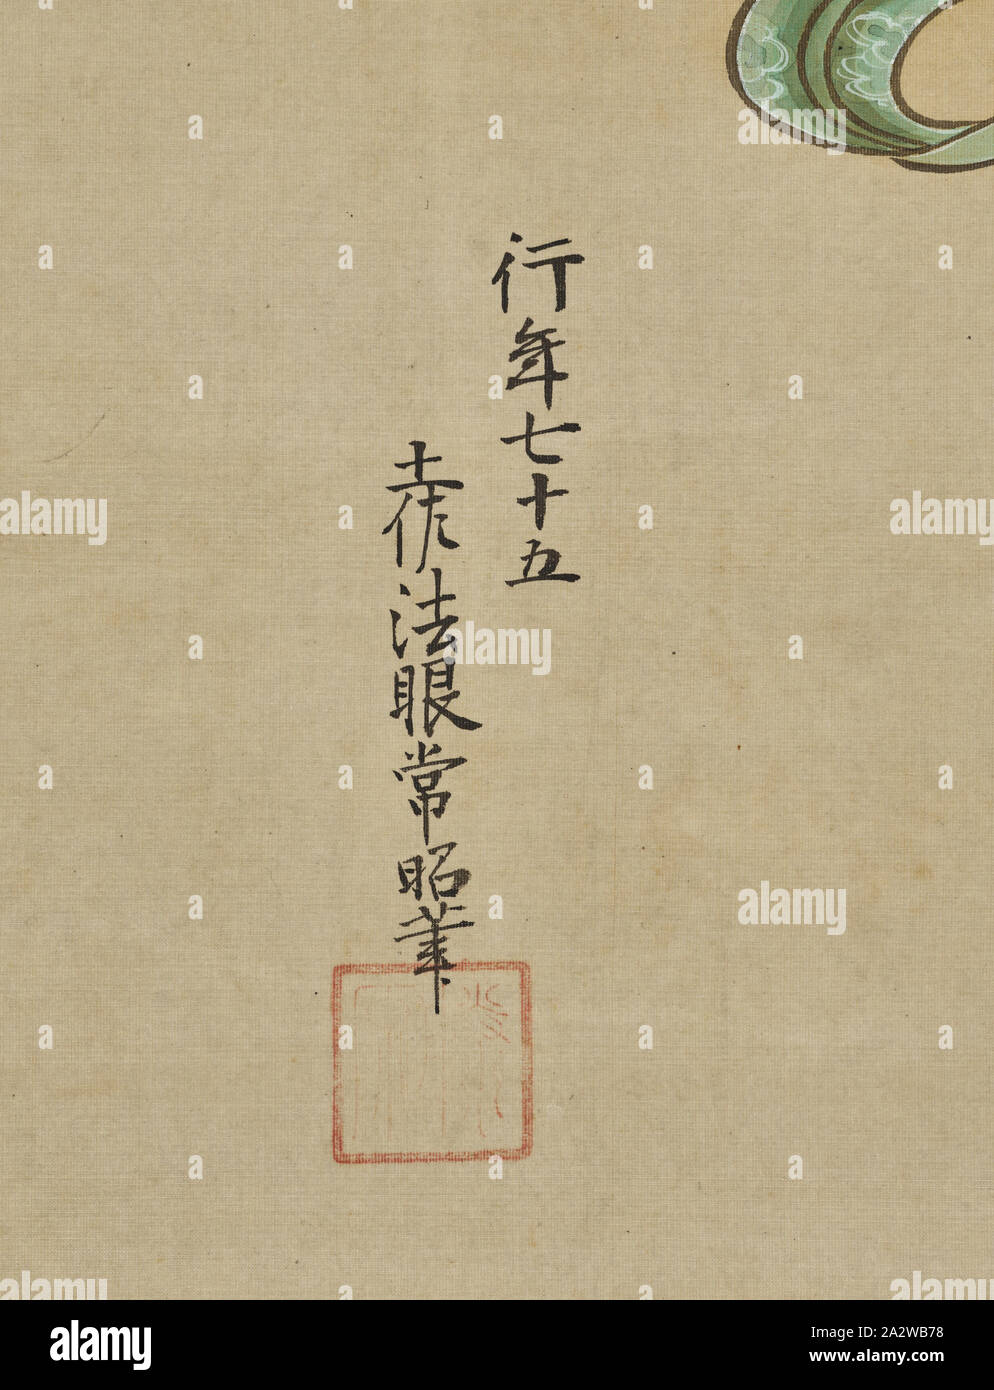 行年七十五
土佐法眼常昭筆
alamy
Image ID: 2A2WB78
www.alamy.com